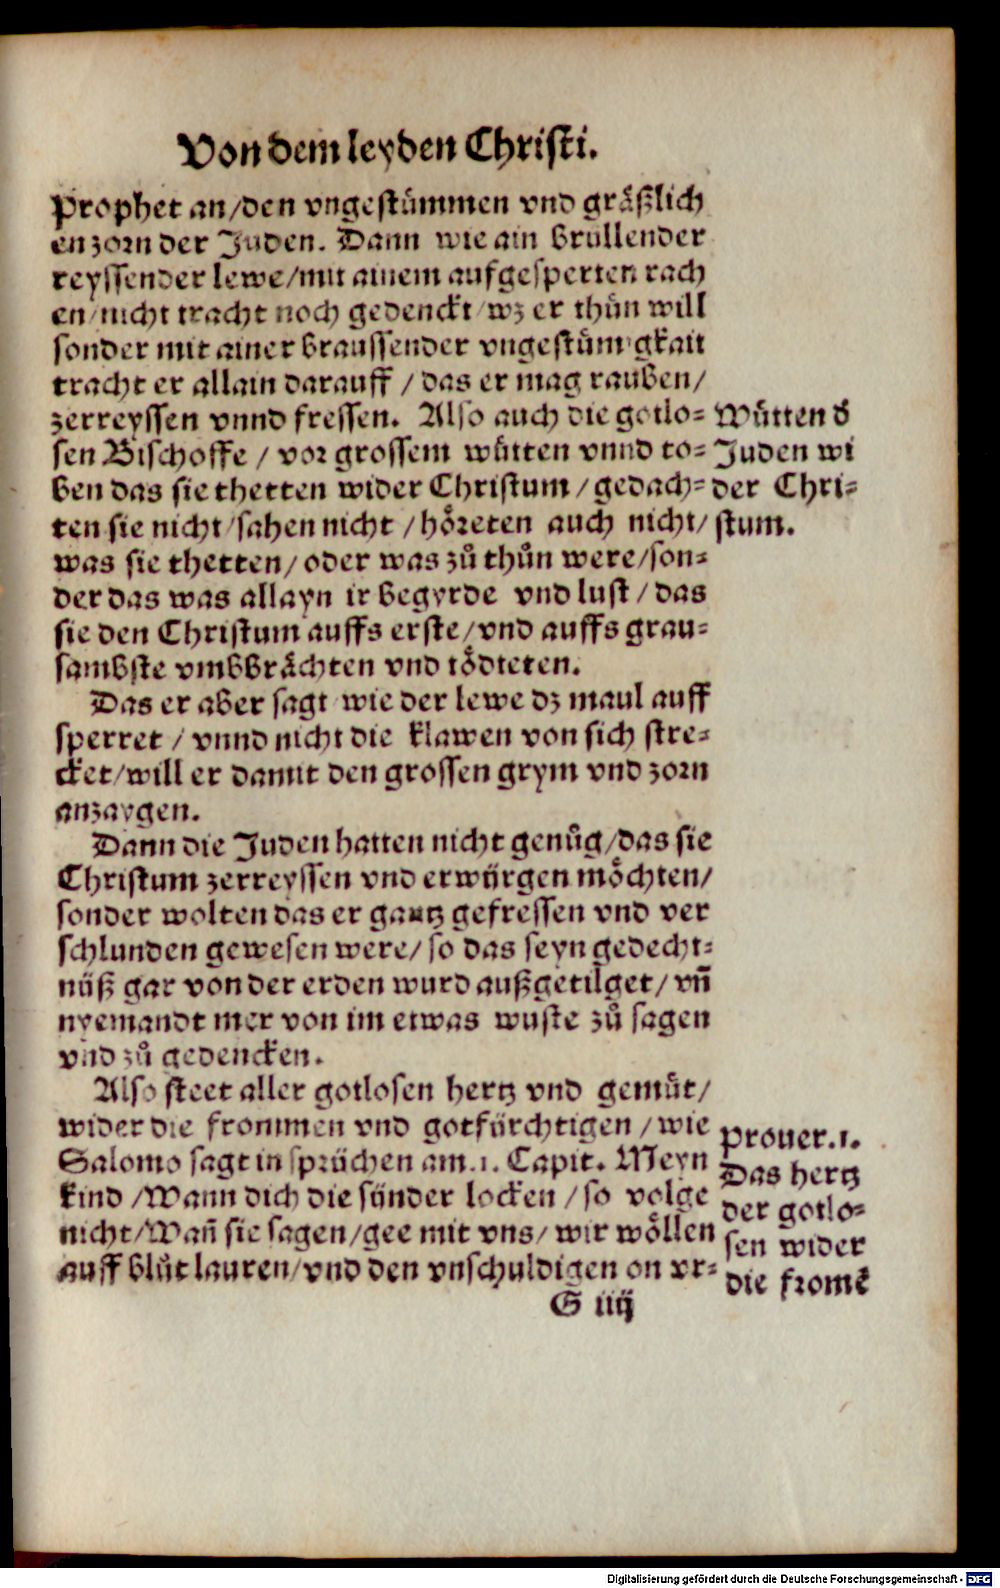 Von dem leyden Christi.
Prophet an/den vngestůmmen vnd gräßlich
en zorn der Juden. Dann wie ain brullender
reyssender lewe/mit ainem aufgesperten rach
en/nicht tracht noch gedenckt/wz er thůn will
sonder mit ainer braussender vngestůmigkait
tracht er allain darauff/das er mag rauben/
zerreyssen vnnd fressen. Also auch die gotlo=
sen Bischoffe/vor grossem wůtten vnnd to=
ben das sie thetten wider Christum/gedach=
ten sie nicht/sahen nicht/höreten auch nicht/
was sie thetten/oder was zů thůn were/son=
der das was allayn ir begyrde vnd lust/das
sie den Christum auffs erste/vnd auffs grau=
sambste vmbbrächten vnd tödteten.
Wůtten d̕
Juden wi
der Chri=
stum.
Das er aber sagt/wie der lewe dz maul auff
sperret/vnnd nicht die klawen von sich stre=
cket/will er damit den grossen grym vnd zorn
anzaygen.
Dann die Juden hatten nicht genůg/das sie
Christum zerreyssen vnd erwürgen möchten/
sonder wolten das er gantz gefressen vnd ver
schlunden gewesen were/so das seyn gedecht=
nüß gar von der erden wurd außgetilget/vñ
nyemandt mer von im etwas wuste zů sagen
vnd zů gedencken.
Also steet aller gotlosen hertz vnd gemůt/
wider die frommen vnd gotfürchtigen/wie
Salomo sagt in sprüchen am.1. Capit. Meyn
kind/Wann dich die sünder locken/so volge
nicht/Wañ sie sagen/gee mit vns/wir wöllen
auff blůt lauren/vnd den vnschuldigen on vr=
Prouer.1.
Das hertz
der gotlo=
sen wider
die fromē
G iiij
Digitalisierung gefördert durch die Deutsche Forschungsgemeinschaft - DFG